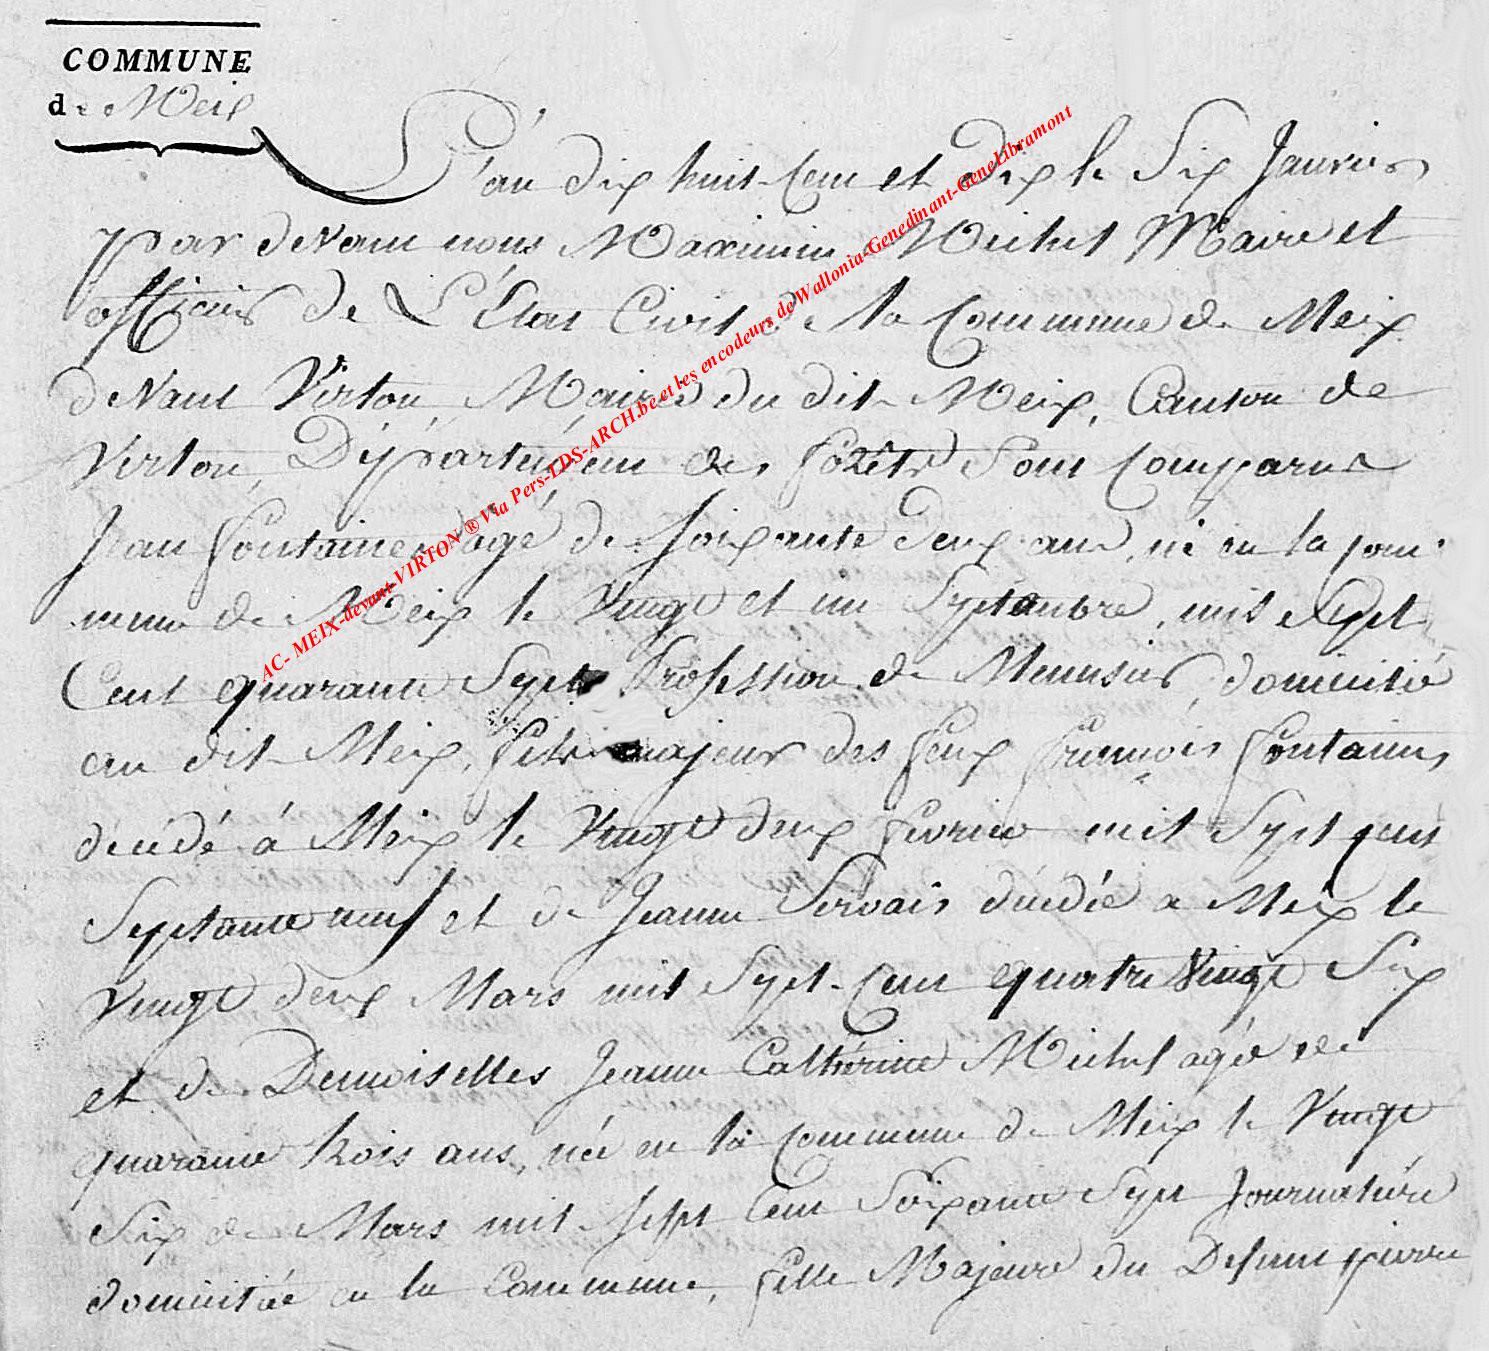 COMMUNE
de Meix
L'an dix huit Cent et dix le Six Janvier
par devant nous Maximin Michel Maire et
officier de L'Etat Civil de la Commune de Meix
devant Virton, Mairie du dit Meix, Canton de
Virton, Département des forêts Sont Comparus
Jean fontaine agé de Soixante deux ans, né en la com
mune de Meix le vingt et un Septembre, mil Sept
Cent quarante Sept Profession de Menusier, domicilié
au dit Meix, fils majeur des feux françois fontaine,
décédé à Meix le vingt deux fevrier mil Sept cent
Septante neuf et de Jeanne Servais décédée a Meix le
vingt deux Mars mil Sept Cent quatre vingt Six
et de Demoiselles Jeanne Cathérine Michel agée de
quarante trois ans, née en la commune de Meix le vingt
Six de Mars mil Sept Cent Soixante Sept Journalière
domiciliée en la Commune, fille Majeure du Defunt pierre
AC- MEIX-devant-VIRTON ® Via Pers-LDS-ARCH.be et les encodeurs de Wallonia-Genedinant-GeneLibramont